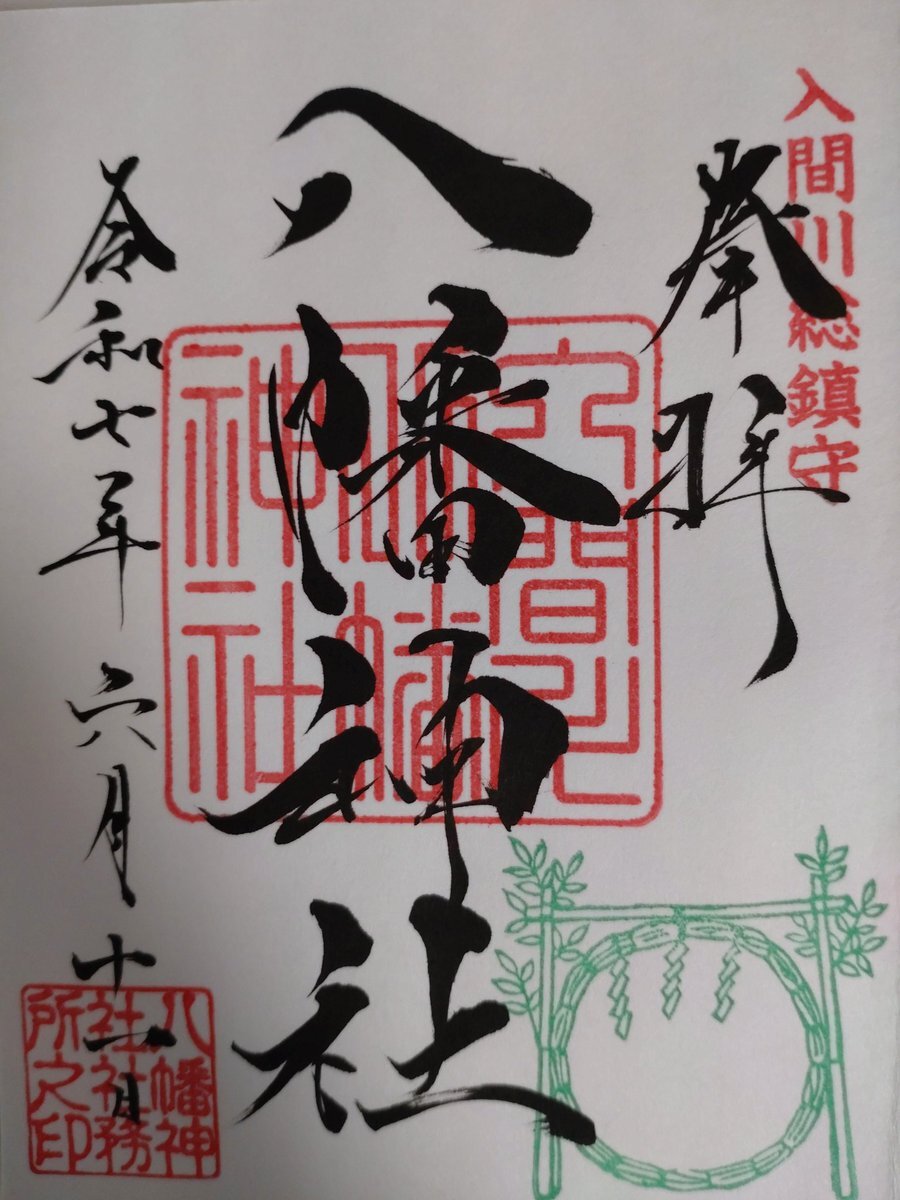 入間川総鎮守
奉拝
八幡神社
入間川
八幡
神社
令和七年六月十一日
八幡神
社社務
所之印